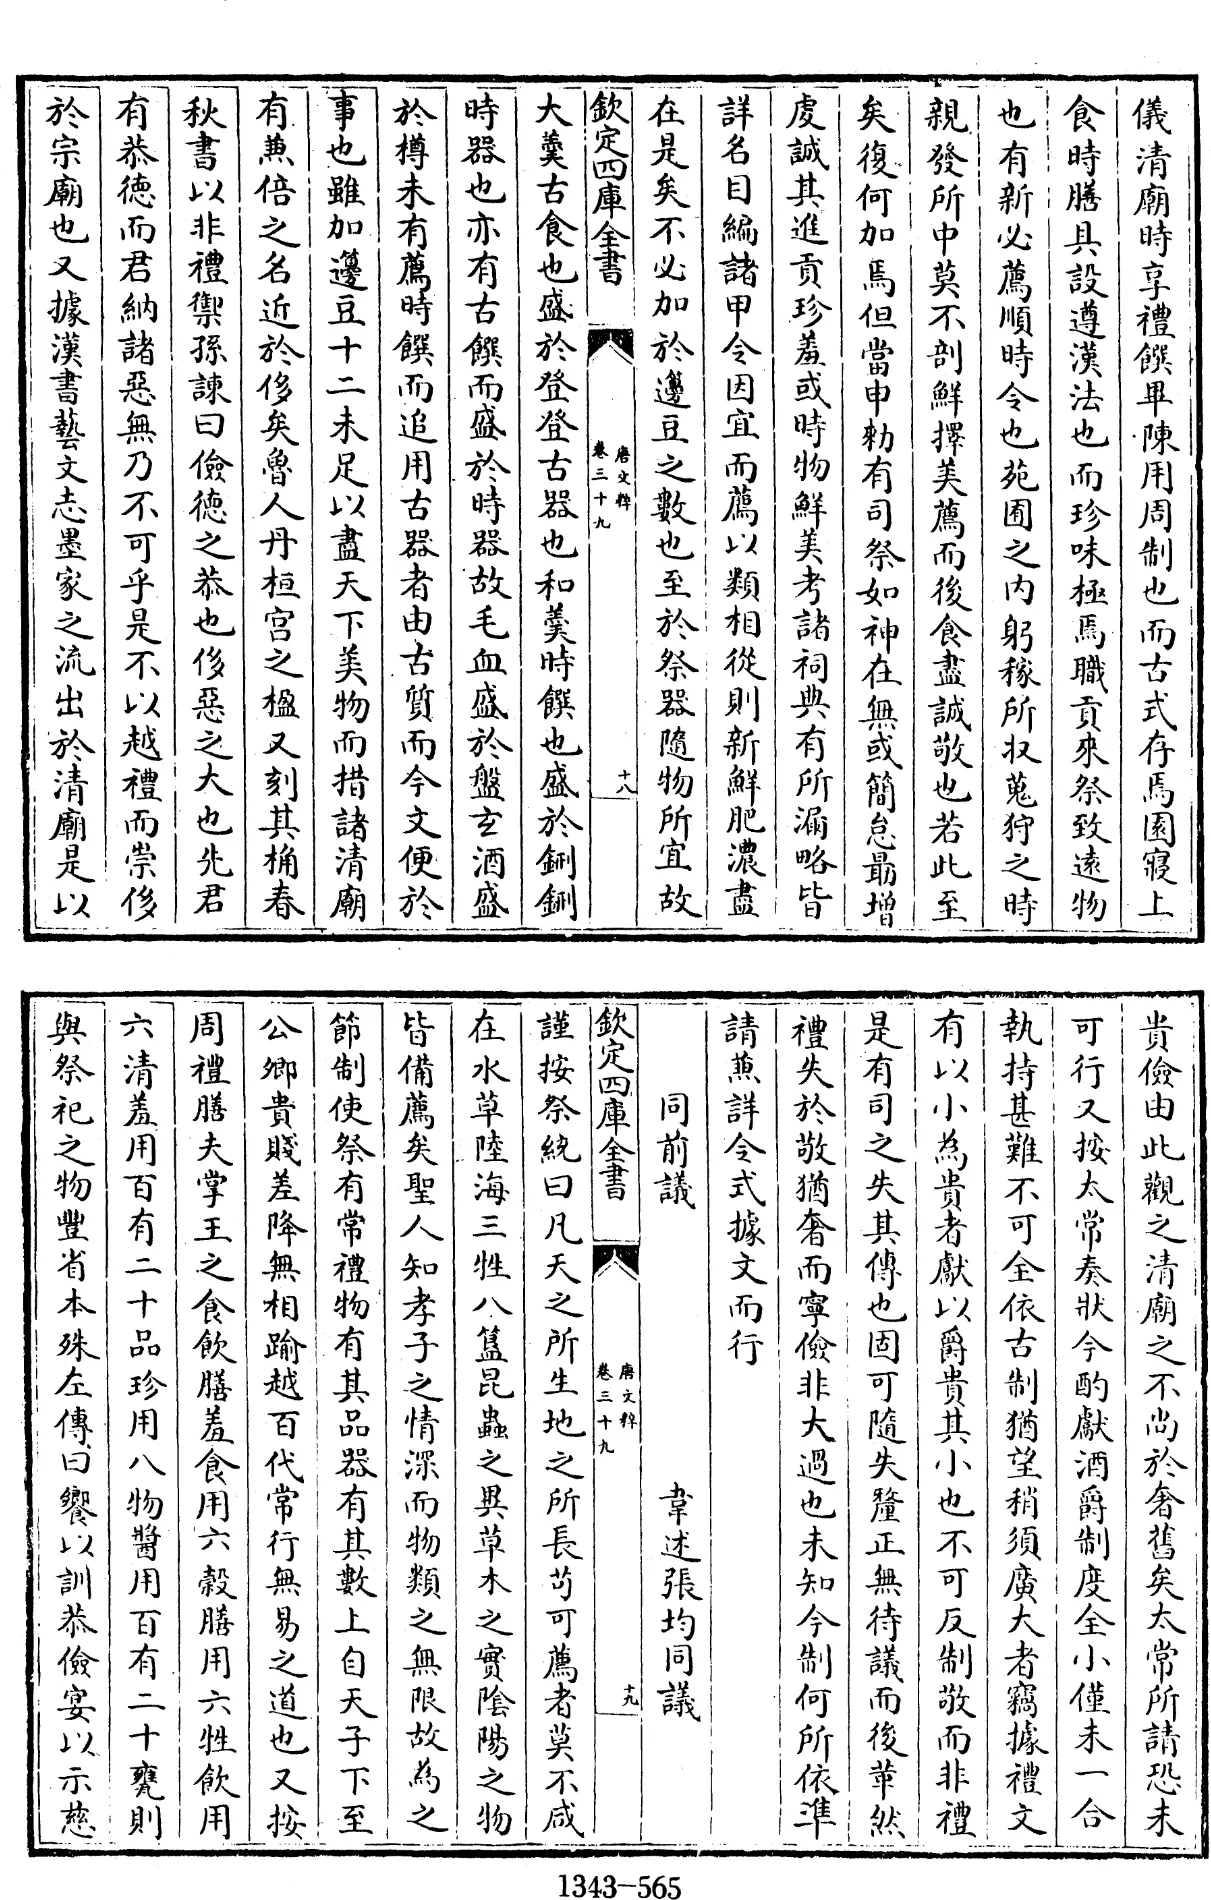 儀清廟時享禮饌畢陳用周制也而古式存焉園寢上
食時膳具設遵漢法也而珍味極焉職貢來祭致遠物
也有新必薦順時令也苑囿之内躬稼所收蒐狩之時
親發所中莫不剖鮮擇美薦而後食盡誠敬也若此至
矣復何加焉但當申勑有司祭如神在無或簡怠勗增
虔誠其進貢珍羞或時物鮮美考諸祠典有所漏略皆
詳名目編諸甲令因宜而薦以類相從則新鮮肥濃盡
在是矣不必加於籩豆之數也至於祭器隨物所宜故
欽定四庫全書
唐文粹
卷三十九
十八
大羹古食也盛於登登古器也和羹時饌也盛於鉶鉶
時器也亦有古饌而盛於時器故毛血盛於盤玄酒盛
於樽未有薦時饌而追用古器者由古質而今文便於
事也雖加籩豆十二未足以盡天下美物而措諸清廟
有兼倍之名近於侈矣魯人丹桓宮之楹又刻其桷春
秋書以非禮禦孫諫曰儉德之恭也侈惡之大也先君
有恭德而君納諸惡無乃不可乎是不以越禮而崇侈
於宗廟也又據漢書藝文志墨家之流出於清廟是以
貴儉由此觀之清廟之不尚於奢舊矣太常所請恐未
可行又按太常奏狀今酌獻酒爵制度全小僅未一合
執持甚難不可全依古制猶望稍須廣大者竊據禮文
有以小為貴者獻以爵貴其小也不可反制敬而非禮
是有司之失其傳也固可隨失釐正無待議而後革然
禮失於敬猶奢而寧儉非大過也未知今制何所依準
請兼詳令式據文而行
同前議 韋述張均同議
欽定四庫全書
唐文粹
卷三十九
十九
謹按祭統曰凡天之所生地之所長苟可薦者莫不咸
在水草陸海三牲八簋昆蟲之異草木之實陰陽之物
皆備薦矣聖人知孝子之情深而物類之無限故為之
節制使祭有常禮物有其品器有其數上自天子下至
公卿貴賤差降無相踰越百代常行無易之道也又按
周禮膳夫掌王之食飲膳羞食用六穀膳用六牲飲用
六清羞用百有二十品珍用八物醬用百有二十甕則
與祭祀之物豐省本殊左傳曰饗以訓恭儉宴以示慈
1343-565